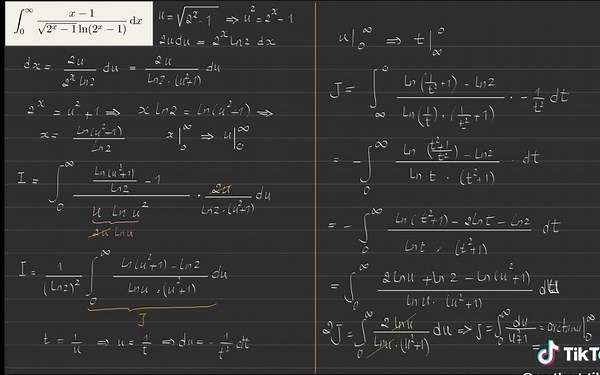 ∫_0^∞ (x − 1) / (√(2^x − 1) ln(2^x − 1)) dx
u = √(2^x − 1) ⇒ u² = 2^x − 1
2u du = 2^x ln2 dx
dx = 2u / (2^x ln2) du = 2u / (ln2 · (u²+1)) du
2^x = u² + 1 ⇒ x ln2 = ln(u²+1) ⇒
x = ln(u²+1) / ln2   x|_0^∞ ⇒ u|_0^∞
I = ∫_0^∞ (ln(u²+1)/ln2 − 1) / (u ln u²) · 2u / (ln2 · (u²+1)) du
2u ln u
I = 1/(ln2)² ∫_0^∞ (ln(u²+1) − ln2) / (ln u · (u²+1)) du
J
t = 1/u ⇒ u = 1/t ⇒ du = − 1/t² dt
u|_0^∞ ⇒ t|_∞^0
J = ∫_∞^0 (ln(1/t² + 1) − ln2) / (ln(1/t) · (1/t² + 1)) · − 1/t² dt
= − ∫_0^∞ (ln((t²+1)/t²) − ln2) / (ln t · (t²+1)) · dt
= − ∫_0^∞ (ln(t²+1) − 2 ln t − ln2) / (ln t · (t²+1)) dt
= ∫_0^∞ (2 ln u + ln 2 − ln(u²+1)) / (ln u · (u²+1)) du
2J = ∫_0^∞ 2 ln u / (ln u · (u²+1)) du ⇒ J = ∫_0^∞ du / (u²+1) = arctan u|_0^∞
=
TikTo